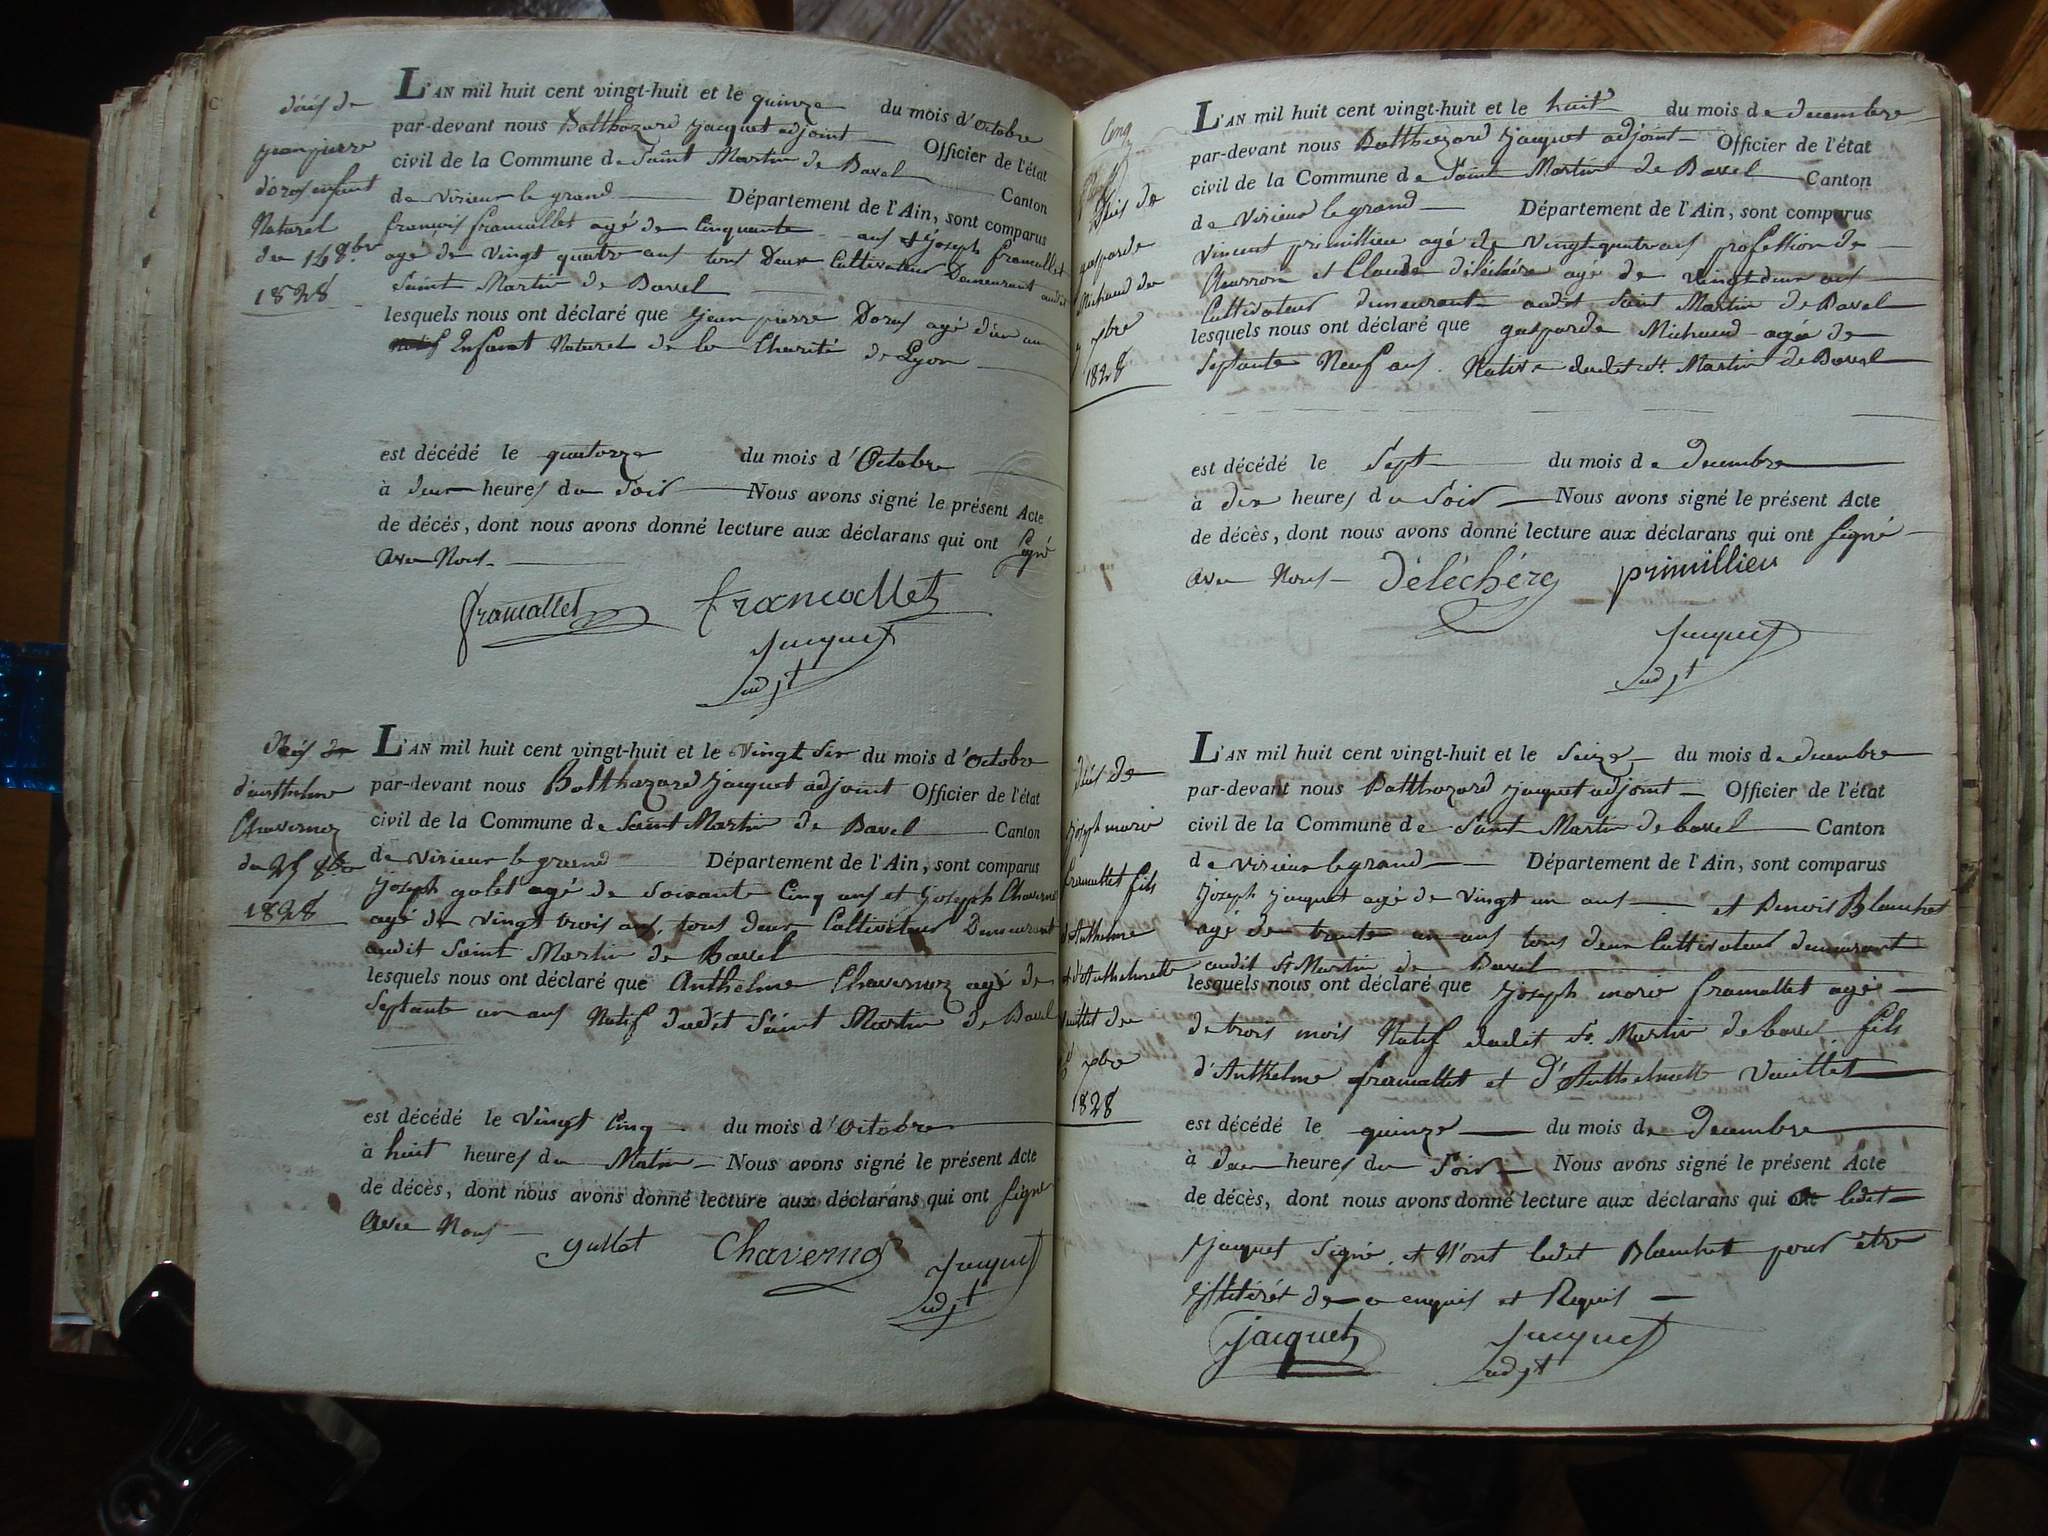 décès de
jean pierre
doros enfant
Naturel
du 14 8.bre
1828
L'AN mil huit cent vingt-huit et le quinze du mois d'Octobre
par-devant nous Balthazard jacquet adjoint Officier de l'état
civil de la Commune de Saint Martin de Bavel Canton
de virieux le grand Département de l'Ain, sont comparus
francois framallet agé de Cinquante ans et joseph framallet
agé de vingt quatre ans tous Deux Cultivateur Demeurant audit
Saint Martin de Bavel
lesquels nous ont déclaré que jean pierre Doros agé d'un an
Enfant Naturel de la Charité de Lyon
est décédé le quatorze du mois d'Octobre
à deux heures du Soir Nous avons signé le présent Acte
de décés, dont nous avons donné lecture aux déclarans qui ont signé
avec Nous
framallet framallet
jacquet
adjt
Décès de
d'anthelme
Chavernoz
du 25 8.bre
1828
L'AN mil huit cent vingt-huit et le vingt Six du mois d'Octobre
par-devant nous Balthazard jacquet adjoint Officier de l'état
civil de la Commune de Saint Martin de Bavel Canton
de virieux le grand Département de l'Ain, sont comparus
joseph golet agé de soixante Cinq ans et joseph Chavernoz
agé de vingt trois ans, tous deux Cultivateur Demeurant
audit Saint Martin de Bavel
lesquels nous ont déclaré que Anthelme Chavernoz agé de
Septante un ans Natif dudit Saint Martin de Bavel
est décédé le vingt Cinq du mois d'Octobre
à huit heures du Matin Nous avons signé le présent Acte
de décès, dont nous avons donné lecture aux déclarans qui ont signé
avec Nous
gullet Chavernoz jacquet
adjt
Cinq
décès de
gasparde
Michaud du
7 xbre
1828
L'AN mil huit cent vingt-huit et le huit du mois de decembre
par-devant nous Balthazard jacquet adjoint Officier de l'état
civil de la Commune de Saint Martin de Bavel Canton
de virieux le grand Département de l'Ain, sont comparus
vincent primillieu agé de vingt quatre ans profession de
Charron et Claude déléchére agé de vingt deux ans
Cultivateur demeurant audit Saint Martin de Bavel
lesquels nous ont déclaré que gasparde Michaud agée de
Septante Neuf ans Native dudit St. Martin de Bavel
est décédé le Sept du mois de decembre
à dix heures du Soir Nous avons signé le présent Acte
de décès, dont nous avons donné lecture aux déclarans qui ont signé
avec Nous déléchére primillieu
jacquet
adjt
décès de
joseph marie
framallet fils
d'Anthelme
et d'Anthelmette
vuillet du
15 xbre
1828
L'AN mil huit cent vingt-huit et le Seize du mois de decembre
par-devant nous Balthazard jacquet adjoint Officier de l'état
civil de la Commune de Saint Martin de bavel Canton
de virieux le grand Département de l'Ain, sont comparus
joseph jacquet agé de vingt un ans et Benoit Blanchet
agé de trante un ans tous deux Cultivateur demeurant
audit St Martin de Bavel
lesquels nous ont déclaré que joseph marie framallet agé
de trois mois Natif dudit St. Martin de bavel fils
d'Anthelme framallet et d'Anthelmette vuillet
est décédé le quinze du mois de decembre
à deux heures du Soir Nous avons signé le présent Acte
de décès, dont nous avons donné lecture aux déclarans qui ont ledit
jacquet Signé, et N'ont ledit Blanchet pour être
illitéré de ce enquis et Requis
jacquet jacquet
adjt